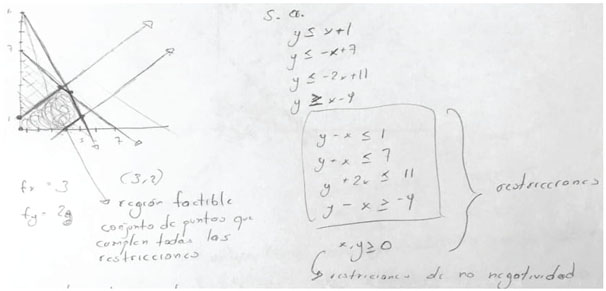 s. a.
y ≤ x+1
y ≤ -x+7
y ≤ -2x+11
y ≥ x-4
y-x ≤ 1
y+x ≤ 7
y+2x ≤ 11
y-x ≥ -4
x,y ≥ 0
restricciones
restricciones de no negatividad
7
7
fx = 3
fy = 2
(3,2)
región factible
conjunto de puntos que
cumplen todas las
restricciones